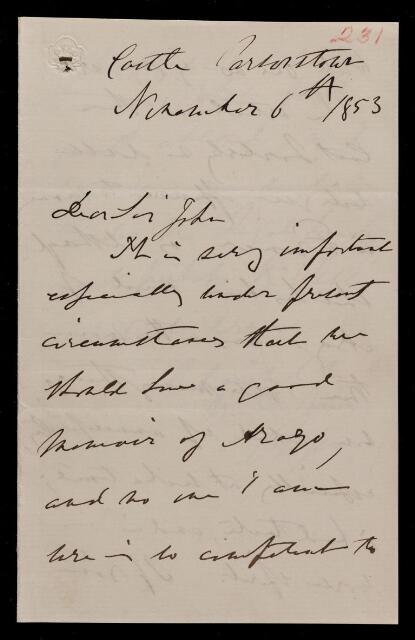 231
Castle Parsonstown
November 6th /853
Dear Sir John
It is very important
especially under present
circumstances that we
should have a good
Memoir of Arago,
and no one I am
sure is so competent to